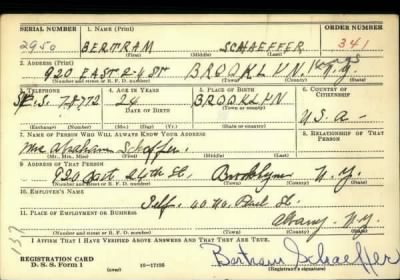 SERIAL NUMBER 1. NAME (Print) ORDER NUMBER
2950 BERTRAM SCHAEFFER 341
(First) (Middle) (Last)
2. ADDRESS (Print)
920 EAST 24 ST BROOKLYN. KINGS N.Y.
(Number and street or R. F. D. number) (Town) (County) (State)
3. TELEPHONE 4. AGE IN YEARS 5. PLACE OF BIRTH 6. COUNTRY OF CITIZENSHIP
24 BROOKLYN
DATE OF BIRTH U.S.A.
(Exchange) (Number) (Mo.) (Day) (Yr.) (State or country)
7. NAME OF PERSON WHO WILL ALWAYS KNOW YOUR ADDRESS 8. RELATIONSHIP OF THAT PERSON
Mrs Abraham Schaffer.
(Mr., Mrs., Miss) (First) (Middle) (Last)
9. ADDRESS OF THAT PERSON
920 East 24th St., Brooklyn N.Y.
(Number and street or R. F. D. number) (Town) (County) (State)
10. EMPLOYER'S NAME
Self. 40 No. Pearl St.
11. PLACE OF EMPLOYMENT OR BUSINESS
Albany N.Y.
(Number and street or R. F. D. number) (Town) (County) (State)
I AFFIRM THAT I HAVE VERIFIED ABOVE ANSWERS AND THAT THEY ARE TRUE.
137
REGISTRATION CARD
D. S. S. Form 1 (over) 16—17105
Bertram Schaeffer
(Registrant's signature)